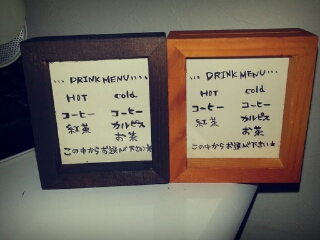 ... DRINK MENU ....
HOT cold
コーヒー コーヒー
紅茶 カルピス
お茶
この中からお選び下さい★
... DRINK MENU ....
HOT cold
コーヒー コーヒー
紅茶 カルピス
お茶
この中からお選び下さい★